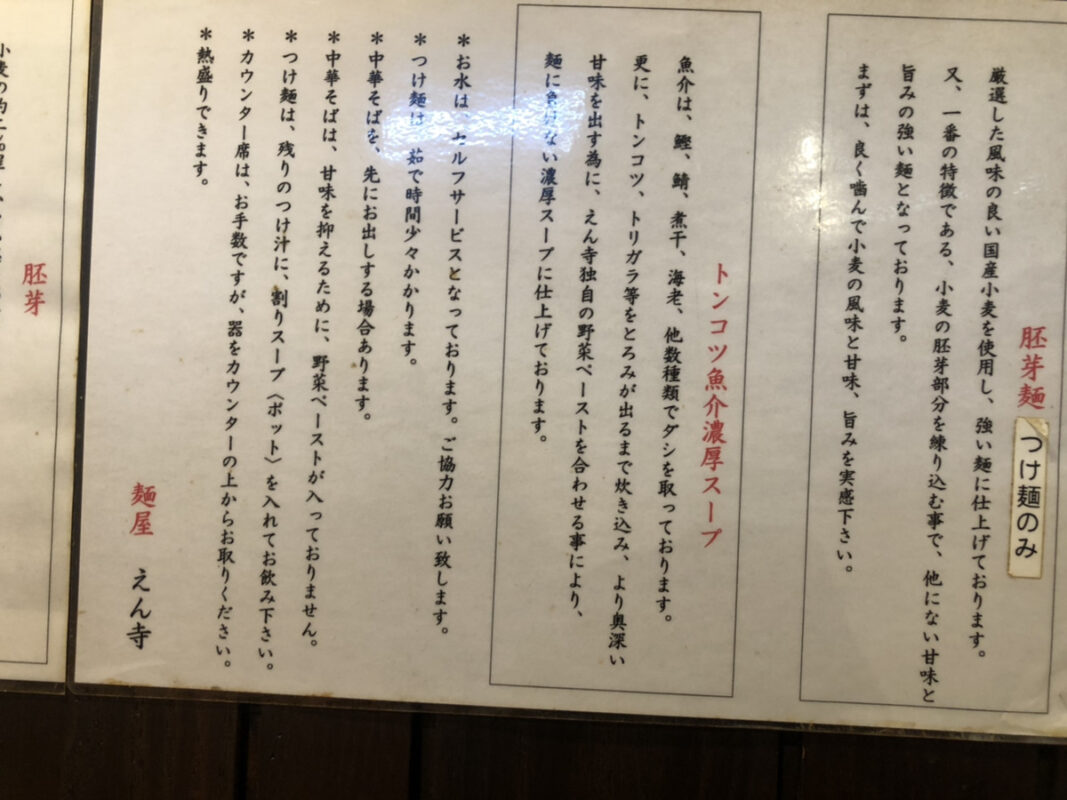 胚芽麺 つけ麺のみ
厳選した風味の良い国産小麦を使用し、強い麺に仕上げております。
又、一番の特徴である、小麦の胚芽部分を練り込む事で、他にない甘味と
旨みの強い麺となっております。
まずは、良く噛んで小麦の風味と甘味、旨みを実感下さい。
トンコツ魚介濃厚スープ
魚介は、鰹、鯖、煮干、海老、他数種類でダシを取っております。
更に、トンコツ、トリガラ等をとろみが出るまで炊き込み、より奥深い
甘味を出す為に、えん寺独自の野菜ペーストを合わせる事により、
麺に負けない濃厚スープに仕上げております。
＊お水は、セルフサービスとなっております。ご協力お願い致します。
＊つけ麺は、茹で時間少々かかります。
＊中華そばを、先にお出しする場合あります。
＊中華そばは、甘味を抑えるために、野菜ペーストが入っておりません。
＊つけ麺は、残りのつけ汁に、割りスープ〈ポット〉を入れてお飲み下さい。
＊カウンター席は、お手数ですが、器をカウンターの上からお取りください。
＊熱盛りできます。
麺屋 えん寺
胚芽